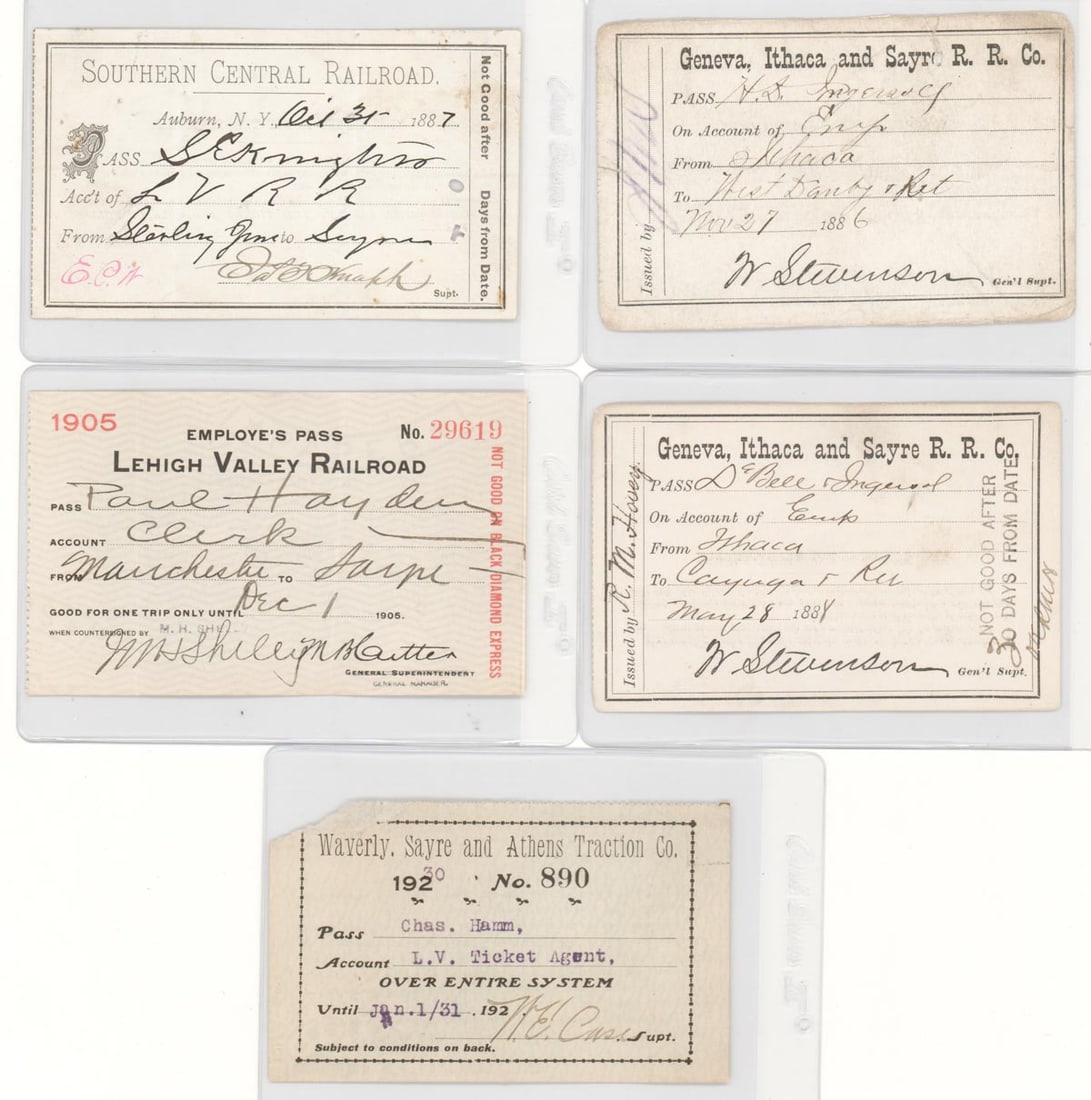 SOUTHERN CENTRAL RAILROAD.
Auburn, N. Y. Oct 31 1887
PASS S E Knight
Acc't of L V R R
From Sterling Junc to Sayre
E.C.W
Supt.
Not Good after Days from Date.
Geneva, Ithaca and Sayre R. R. Co.
PASS H. D. Ingersoll
On Account of Emp
From Ithaca
To West Danby & Ret
Nov 27 1886
W Stevenson Gen'l Supt.
Issued by
1905
EMPLOYE'S PASS No. 29619
LEHIGH VALLEY RAILROAD
PASS Paul Hayden
ACCOUNT Clerk
FROM Manchester TO Sayre
GOOD FOR ONE TRIP ONLY UNTIL Dec 1 1905.
WHEN COUNTERSIGNED BY M. H. SH
GENERAL SUPERINTENDENT
GENERAL MANAGER.
NOT GOOD ON BLACK DIAMOND EXPRESS
Geneva, Ithaca and Sayre R. R. Co.
PASS & Ingersol
On Account of Emp
From Ithaca
To Cayuga & Ret
May 28 188
W Stevenson Gen'l Supt.
Issued by R. M. Hovey.
NOT GOOD AFTER
30 DAYS FROM DATE
Waverly, Sayre and Athens Traction Co.
19230 No. 890
Pass Chas. Hamm,
Account L.V. Ticket Agent,
OVER ENTIRE SYSTEM
Until Jan.1/31 . 192
W.E. Case Supt.
Subject to conditions on back.